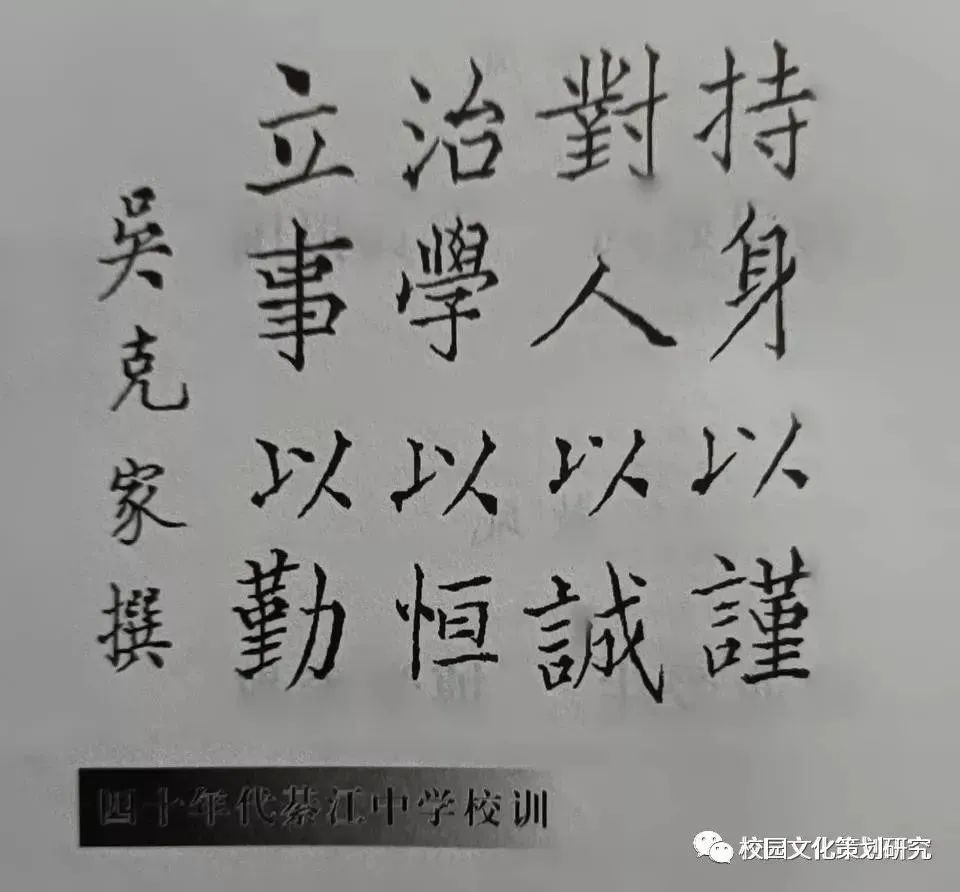 持身以謹
對人以誠
治學以恒
立事以勤
吳克家撰
四十年代綦江中学校训
校园文化策划研究